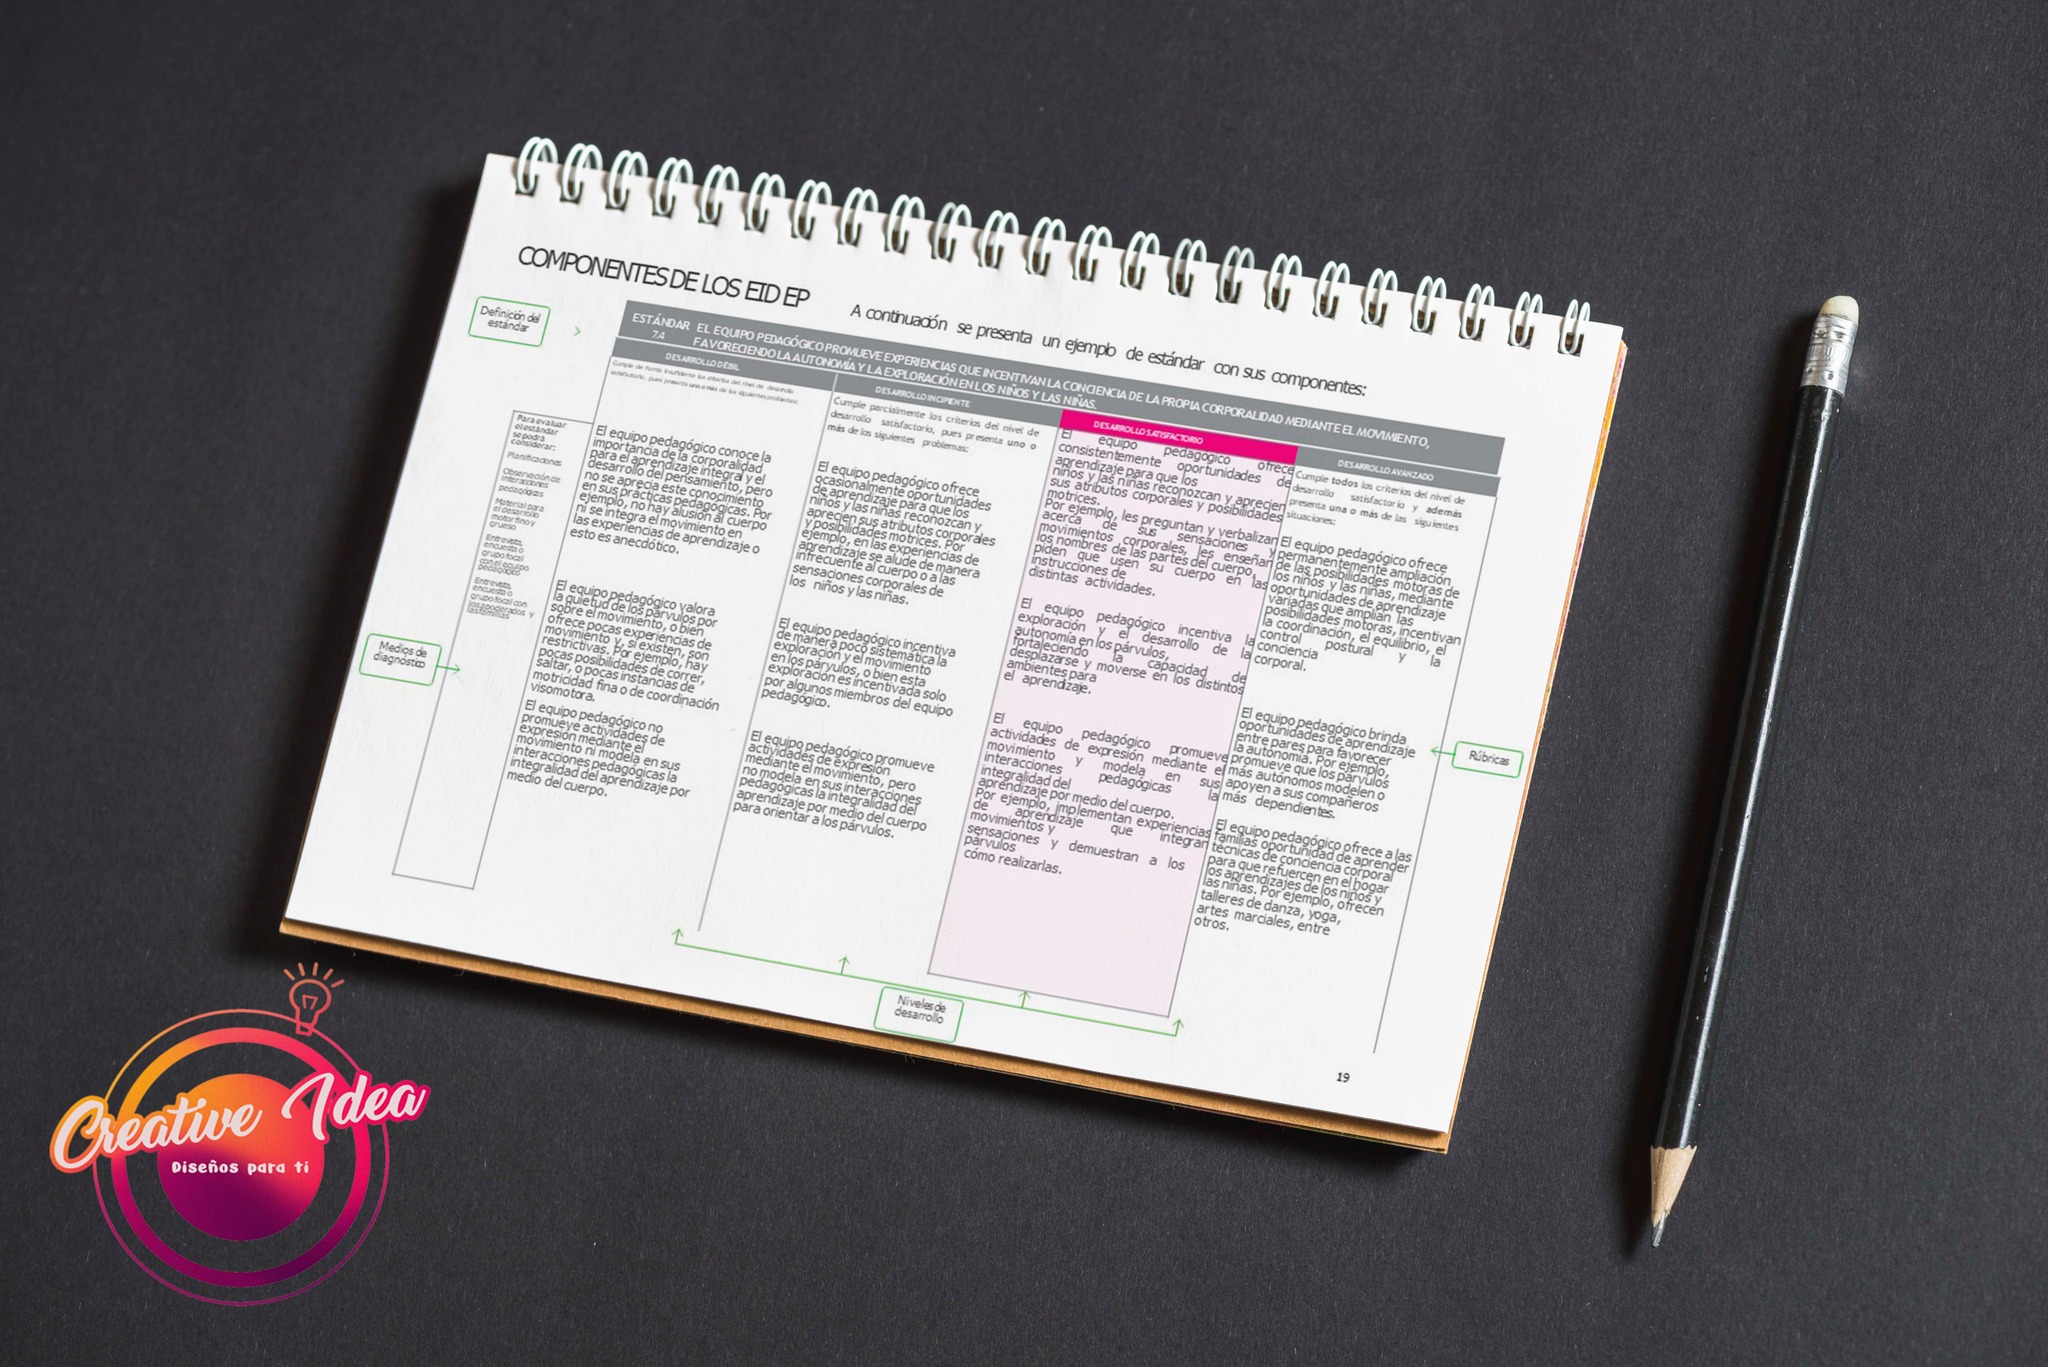 COMPONENTES DE LOS EID EP
A continuación se presenta un ejemplo de estándar con sus componentes:
Definición del
estándar
ESTÁNDAR
7.4
EL EQUIPO PEDAGÓGICO PROMUEVE EXPERIENCIAS QUE INCENTIVAN LA CONCIENCIA DE LA PROPIA CORPORALIDAD MEDIANTE EL MOVIMIENTO,
FAVORECIENDO LA AUTONOMÍA Y LA EXPLORACIÓN EN LOS NIÑOS Y LAS NIÑAS.
Para evaluar
el estándar
se podrá
considerar:
Planificaciones
Observación de
interacciones
pedagógicas
Material para
el desarrollo
motor fino y
grueso
Entrevista,
encuesta o
grupo focal
con el equipo
pedagógico
Entrevista,
encuesta o
grupo focal con
los apoderados y
las familias
Medios de
diagnóstico
DESARROLLO DÉBIL
Cumple de forma insuficiente los criterios del nivel de desarrollo
satisfactorio, pues presenta uno o más de los siguientes problemas:
El equipo pedagógico conoce la
importancia de la corporalidad
para el aprendizaje integral y el
desarrollo del pensamiento, pero
no se aprecia este conocimiento
en sus prácticas pedagógicas. Por
ejemplo, no hay alusión al cuerpo
ni se integra el movimiento en
las experiencias de aprendizaje o
esto es anecdótico.
El equipo pedagógico valora
la quietud de los párvulos por
sobre el movimiento, o bien
ofrece pocas experiencias de
movimiento y, si existen, son
restrictivas. Por ejemplo, hay
pocas posibilidades de correr,
saltar, o pocas instancias de
motricidad fina o de coordinación
visomotora.
El equipo pedagógico no
promueve actividades de
expresión mediante el
movimiento ni modela en sus
interacciones pedagógicas la
integralidad del aprendizaje por
medio del cuerpo.
DESARROLLO INCIPIENTE
Cumple parcialmente los criterios del nivel de
desarrollo satisfactorio, pues presenta uno o
más de los siguientes problemas:
El equipo pedagógico ofrece
ocasionalmente oportunidades
de aprendizaje para que los
niños y las niñas reconozcan y
aprecien sus atributos corporales
y posibilidades motrices. Por
ejemplo, en las experiencias de
aprendizaje se alude de manera
infrecuente al cuerpo o a las
sensaciones corporales de
los niños y las niñas.
El equipo pedagógico incentiva
de manera poco sistemática la
exploración y el movimiento
en los párvulos, o bien esta
exploración es incentivada solo
por algunos miembros del equipo
pedagógico.
El equipo pedagógico promueve
actividades de expresión
mediante el movimiento, pero
no modela en sus interacciones
pedagógicas la integralidad del
aprendizaje por medio del cuerpo
para orientar a los párvulos.
DESARROLLO SATISFACTORIO
El equipo pedagógico ofrece
consistentemente oportunidades de
aprendizaje para que los
niños y las niñas reconozcan y aprecien
sus atributos corporales y posibilidades
motrices.
Por ejemplo, les preguntan y verbalizan
acerca de sus sensaciones y
movimientos corporales, les enseñan
los nombres de las partes del cuerpo,
piden que usen su cuerpo en las
instrucciones de
distintas actividades.
El equipo pedagógico incentiva la
exploración y el desarrollo de la
autonomía en los párvulos,
fortaleciendo la capacidad de
desplazarse y moverse en los distintos
ambientes para
el aprendizaje.
El equipo pedagógico promueve
actividades de expresión mediante el
movimiento y modela en sus
interacciones pedagógicas la
integralidad del
aprendizaje por medio del cuerpo.
Por ejemplo, implementan experiencias
de aprendizaje que integran
movimientos y
sensaciones y demuestran a los
párvulos
cómo realizarlas.
DESARROLLO AVANZADO
Cumple todos los criterios del nivel de
desarrollo satisfactorio y además
presenta una o más de las siguientes
situaciones:
El equipo pedagógico ofrece
permanentemente ampliación
de las posibilidades motoras de
los niños y las niñas, mediante
oportunidades de aprendizaje
variadas que amplían las
posibilidades motoras, incentivan
la coordinación, el equilibrio, el
control postural y la
conciencia
corporal.
El equipo pedagógico brinda
oportunidades de aprendizaje
entre pares para favorecer
la autonomía. Por ejemplo,
promueve que los párvulos
más autónomos modelen o
apoyen a sus compañeros
más dependientes.
El equipo pedagógico ofrece a las
familias oportunidad de aprender
técnicas de conciencia corporal
para que refuercen en el hogar
los aprendizajes de los niños y
las niñas. Por ejemplo, ofrecen
talleres de danza, yoga,
artes marciales, entre
otros.
Rúbricas
Niveles de
desarrollo
19
Creative Idea
Diseños para ti